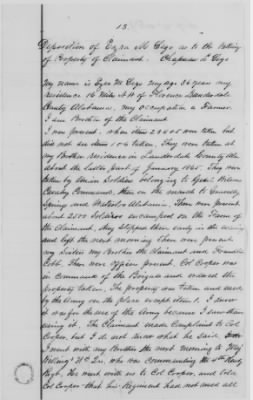 13.
Deposition of Ezra M Cigo as to the taking
of Property of Claimant. Chapman A Cigo
My name is Ezra M Cigo my age 34 years my
residence 16 Miles N.W. of Florence Lauderdale
County Alabama, my occupation a Farmer.
I am Brother of the Claimant
I was present when items 2 & 4 & 5 were taken but
did not see items 1 & 6 taken. They were taken at
my Brothers residence in Lauderdale County Ala
about the latter part of January 1865. They were
taken by Union Soldiers belonging to Genl Wilsons
Cavalry Command, then on the march to Gravelly
Spring and Waterloo Alabama. There were present
about 2500 Soldiers encamped on the Farm of
the Claimant, they stopped there early in the evening
and left the next morning There were present
my Sister my Brother the Claimant and
Cobb. There were officers present, Col Cooper was
in command of the Brigade and ordered the
property taken. The property was taken and used
by the Army on the place except item 1. I know
it was for the use of the Army because I saw them
using it. The Claimant made Complaint to Col
Cooper, but I do not know what he said.
I went with my Brother the next morning to
Head Qrs, who was commanding the 4th
Regt. He went with us to Col Cooper, and told
Col Cooper that his Regiment had not used all